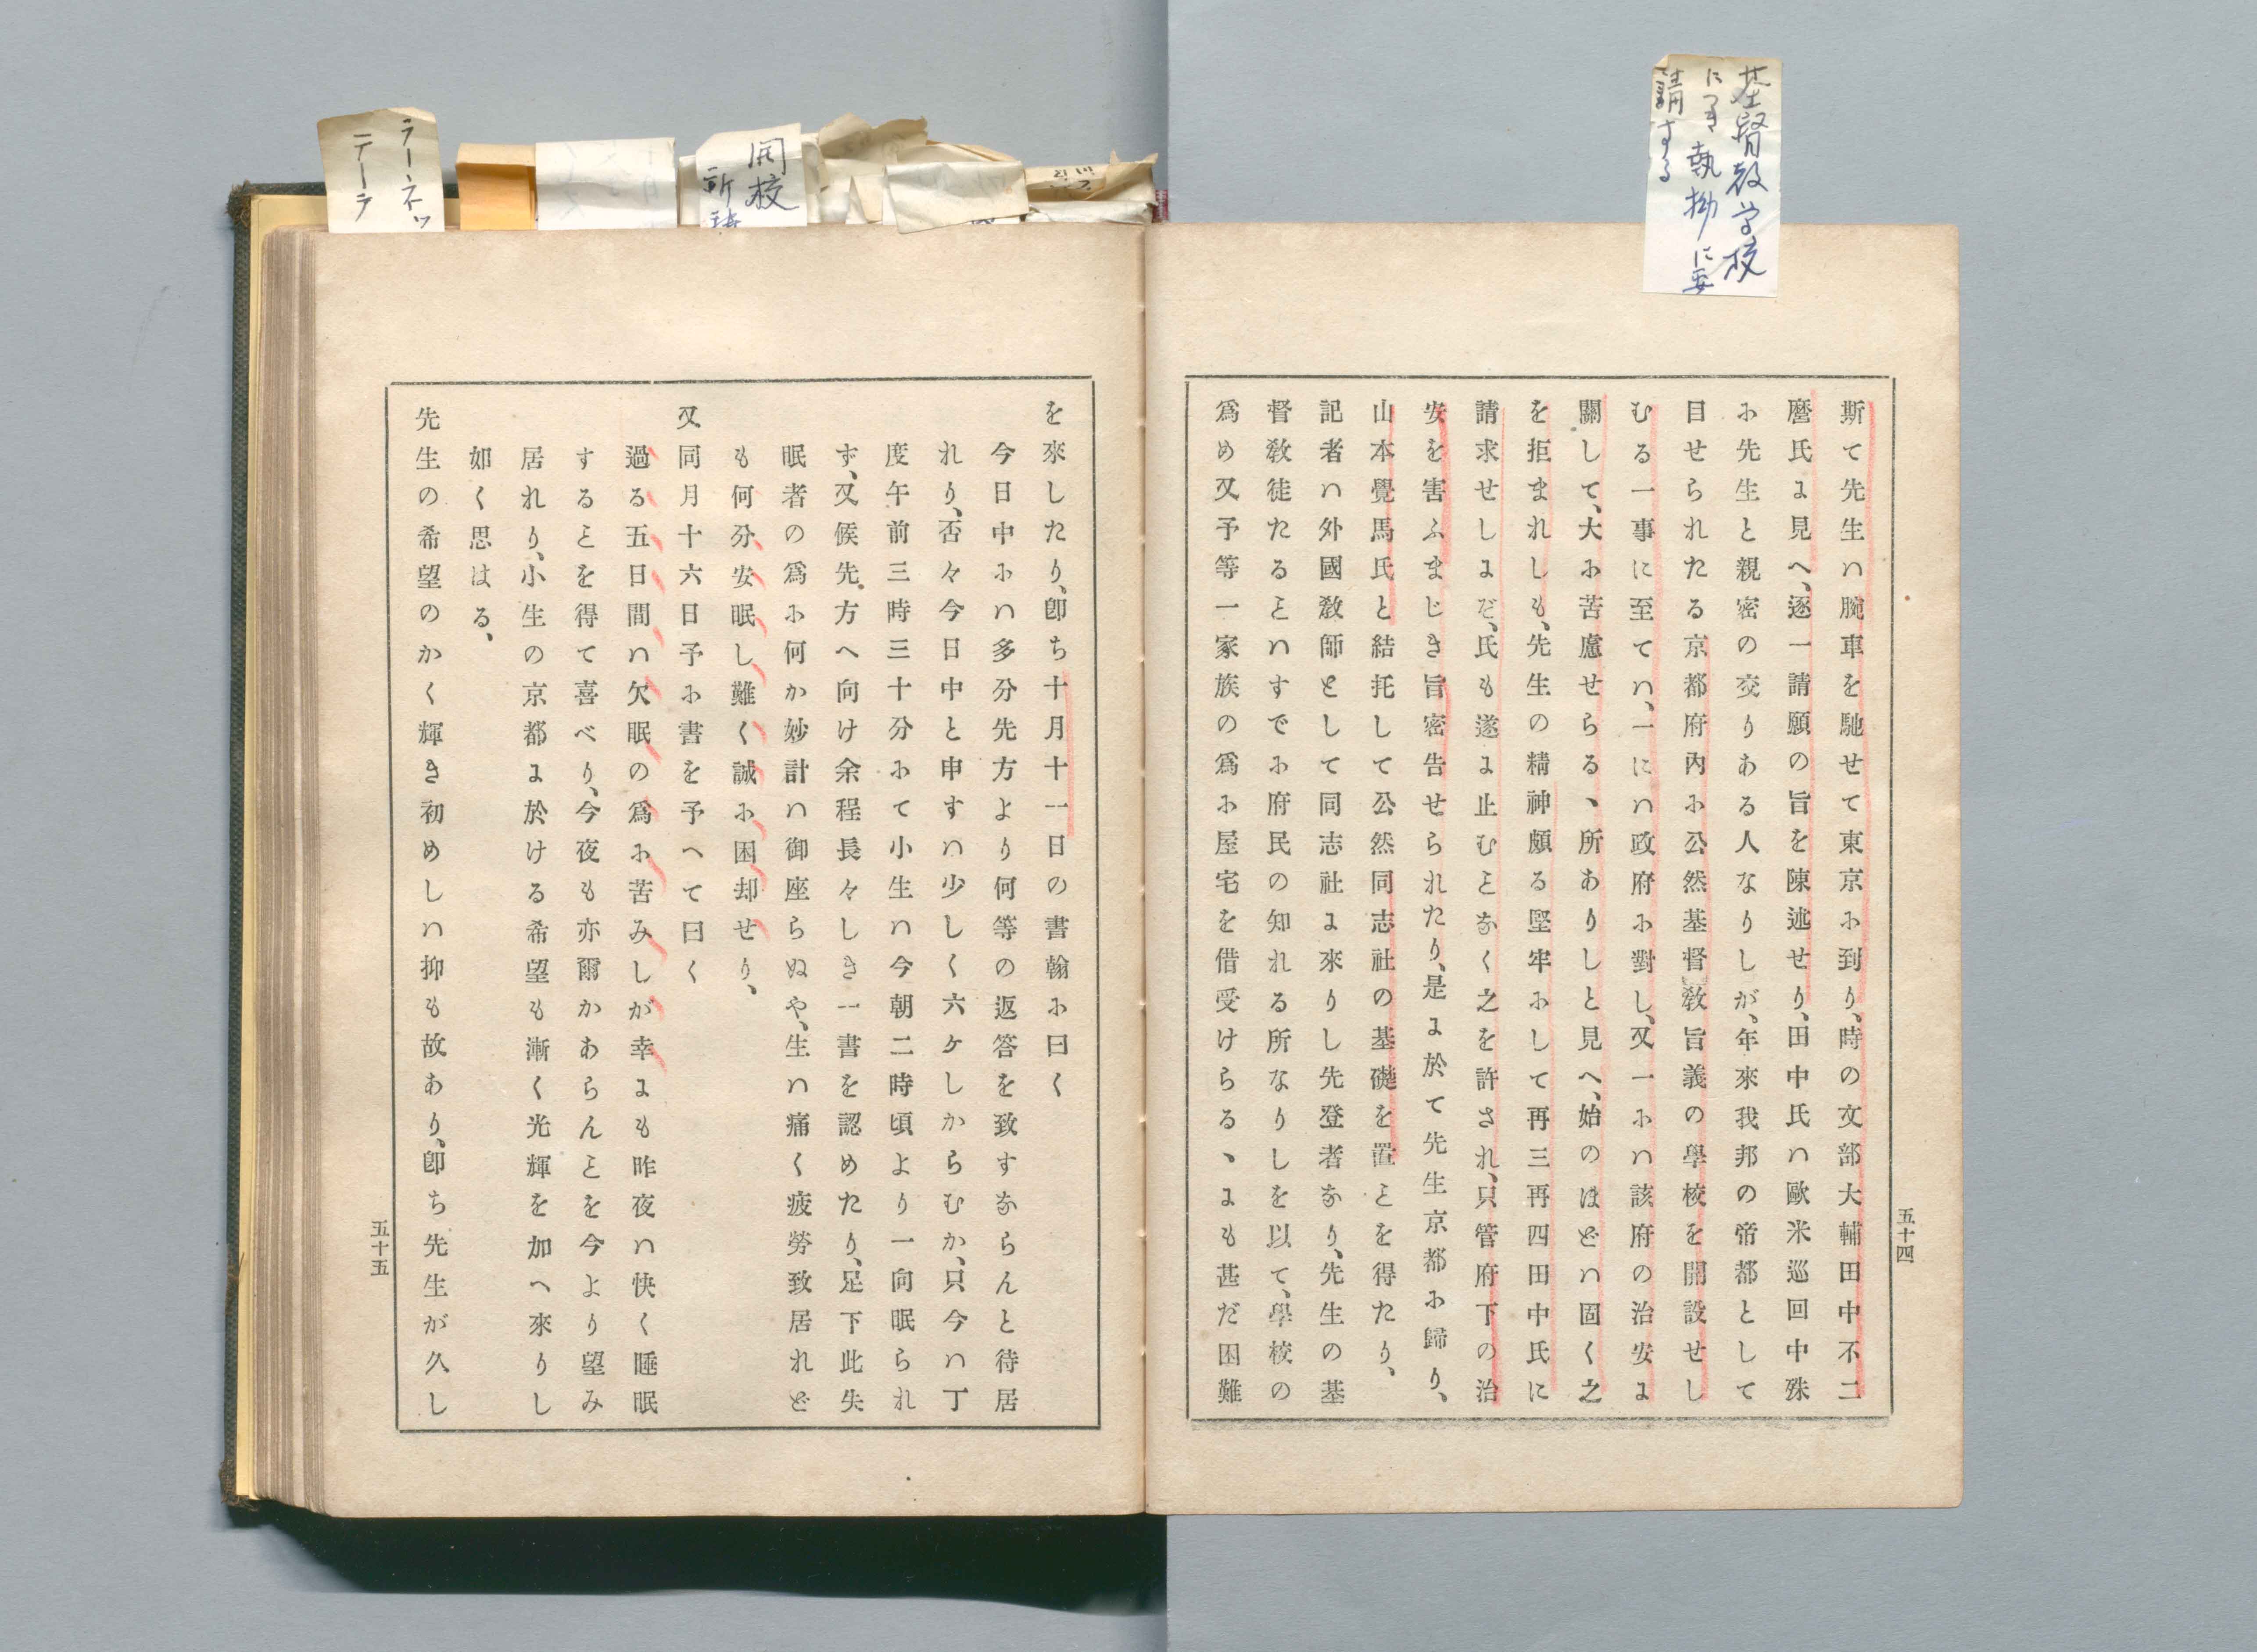 基督教学校
につき執拗に要
請する
斯て先生ハ腕車を馳せて東京ホ到り、時の文部大輔田中不二
麿氏ま見へ、逐一請願の旨を陳述せり、田中氏ハ歐米巡回中殊
ホ先生と親密の交りある人なりしが、年來我邦の帝都として
目せられたる京都府內ホ公然基督敎旨義の學校を開設せし
むる一事に至てハ、一にハ政府ホ對し、又一ホハ該府の治安ま
關して、大ホ苦慮せらるゝ所ありしと見へ、始のほどハ固く之
を拒まれしも、先生の精神頗る堅牢ホして再三再四田中氏に
請求せしまぞ、氏も遂ま止むとなく之を許され、只管府下の治
安を害ふまじき旨密告せられたり、是ま於て先生京都ホ歸り、
山本覺馬氏と結托して公然同志社の基礎を置とを得たり、
記者ハ外國敎師として同志社ま來りし先登者なり、先生の基
督敎徒たるとハすでホ府民の知れる所なりしを以て、學校の
爲め又予等一家族の爲ホ屋宅を借受けらるゝまも甚だ困難
五十四
ラーネッ
テーラ
開校
を來したり、卽ち十月十一日の書翰ホ曰く
今日中ホハ多分先方より何等の返答を致すならんと待居
れり、否々今日中と申すハ少しく六ケしからむか、只今ハ丁
度午前三時三十分ホて小生ハ今朝二時頃より一向眠られ
ず、又候先方へ向け余程長々しき一書を認めたり、足下此失
眠者の爲ホ何か妙計ハ御座らぬや、生ハ痛く疲勞致居れど
も何分安眠し難く誠ホ困却せり、
又同月十六日予ホ書を予へて曰く
過る五日間ハ欠眠の爲ホ苦みしが幸まも昨夜ハ快く睡眠
するとを得て喜べり、今夜も亦爾かあらんとを今より望み
居れり、小生の京都ま於ける希望も漸く光輝を加へ來りし
如く思はる、
先生の希望のかく輝き初めしハ抑も故あり、卽ち先生が久し
五十五